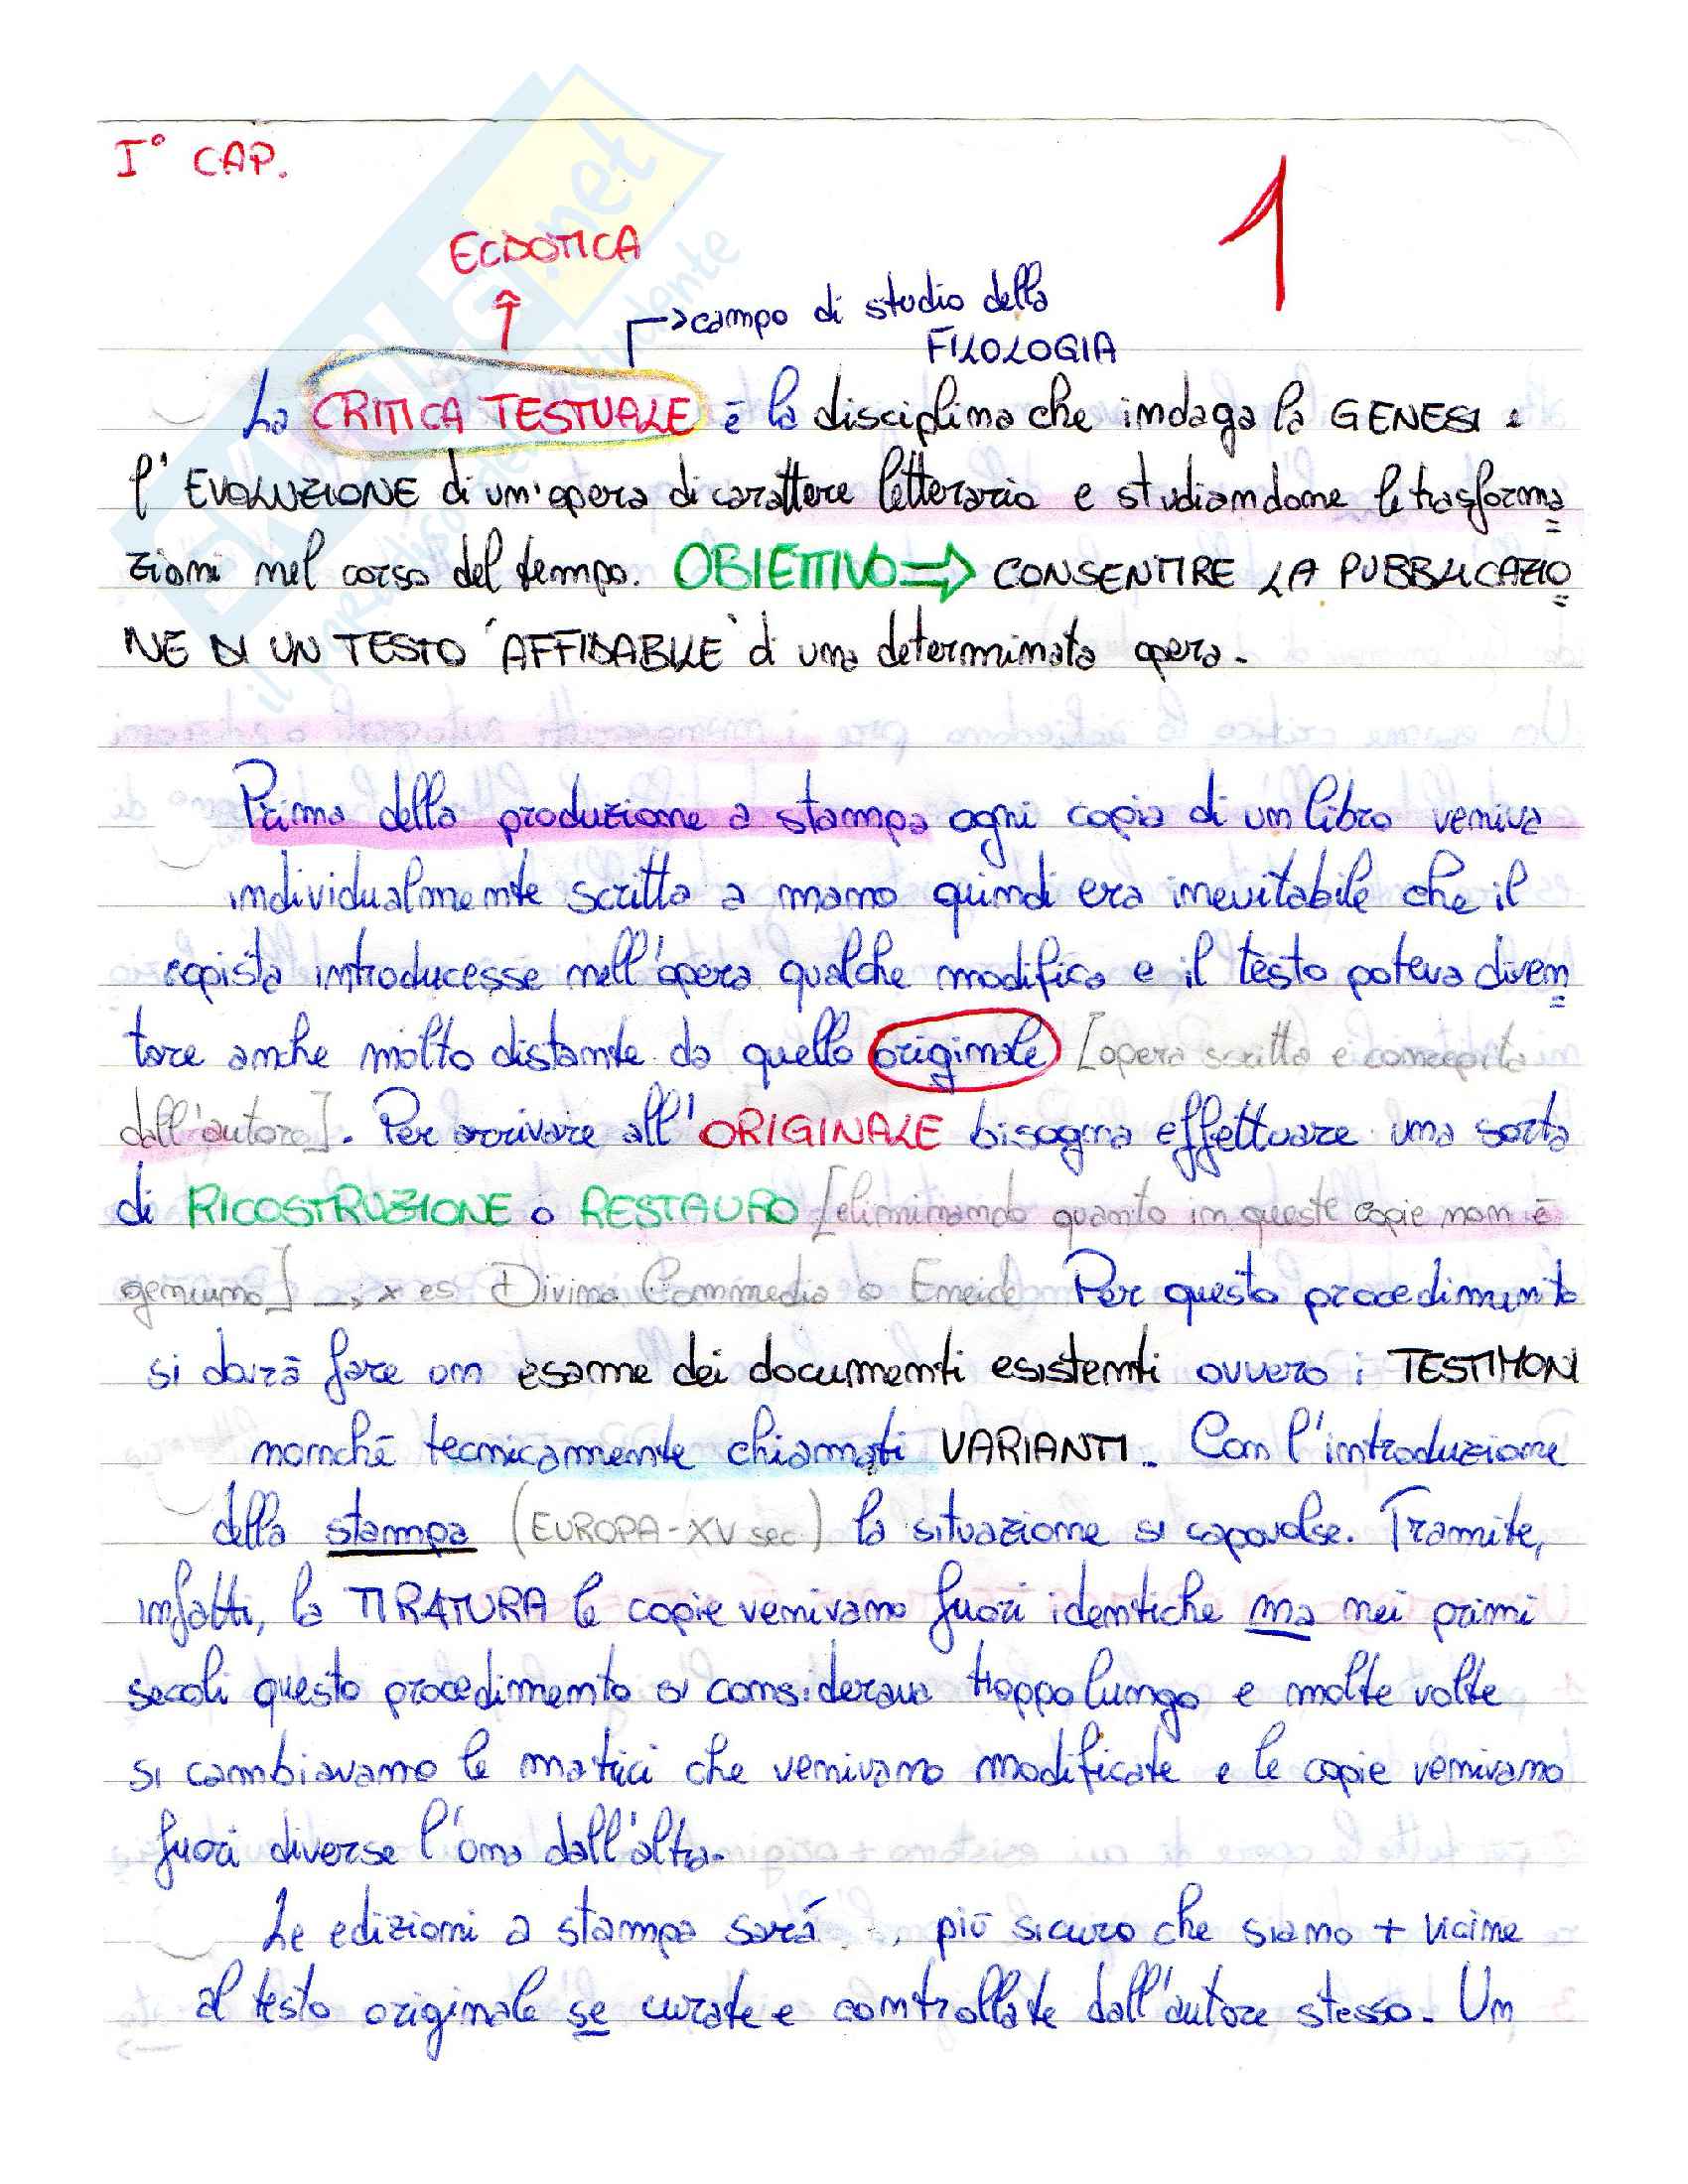 I° CAP.
1
ECDOTICA
campo di studio della
FILOLOGIA
La CRITICA TESTUALE è la disciplina che indaga la GENESI e
l'EVOLUZIONE di un'opera di carattere letterario e studiandone le trasforma
zioni nel corso del tempo. OBIETTIVO ⇒ CONSENTIRE LA PUBBLICAZIO
NE DI UN TESTO ´AFFIDABILE` di una determinata opera.
Prima della produzione a stampa ogni copia di un libro veniva
individualmente scritta a mano quindi era inevitabile che il
copista introducesse nell'opera qualche modifica e il testo poteva diven
tare anche molto distante da quello originale [opera scritta e concepita
dall'autore]. Per arrivare all'ORIGINALE bisogna effettuare una sorta
di RICOSTRUZIONE o RESTAURO [eliminando quanto in queste copie non è
genuino] → x es Divina Commedia o Eneide Per questo procedimento
si dovrà fare un esame dei documenti esistenti ovvero i TESTIMONI
nonché tecnicamente chiamati VARIANTI. Con l'introduzione
della stampa (EUROPA-XV sec) la situazione si capovolse. Tramite,
infatti, la TIRATURA le copie venivano fuori identiche ma nei primi
secoli questo procedimento si considerava troppo lungo e molte volte
si cambiavano le matrici che venivano modificate e le copie venivano
fuori diverse l'una dall'altra.
Le edizioni a stampa sarà più sicuro che siano + vicine
al testo originale se curate e controllate dall'autore stesso. Un